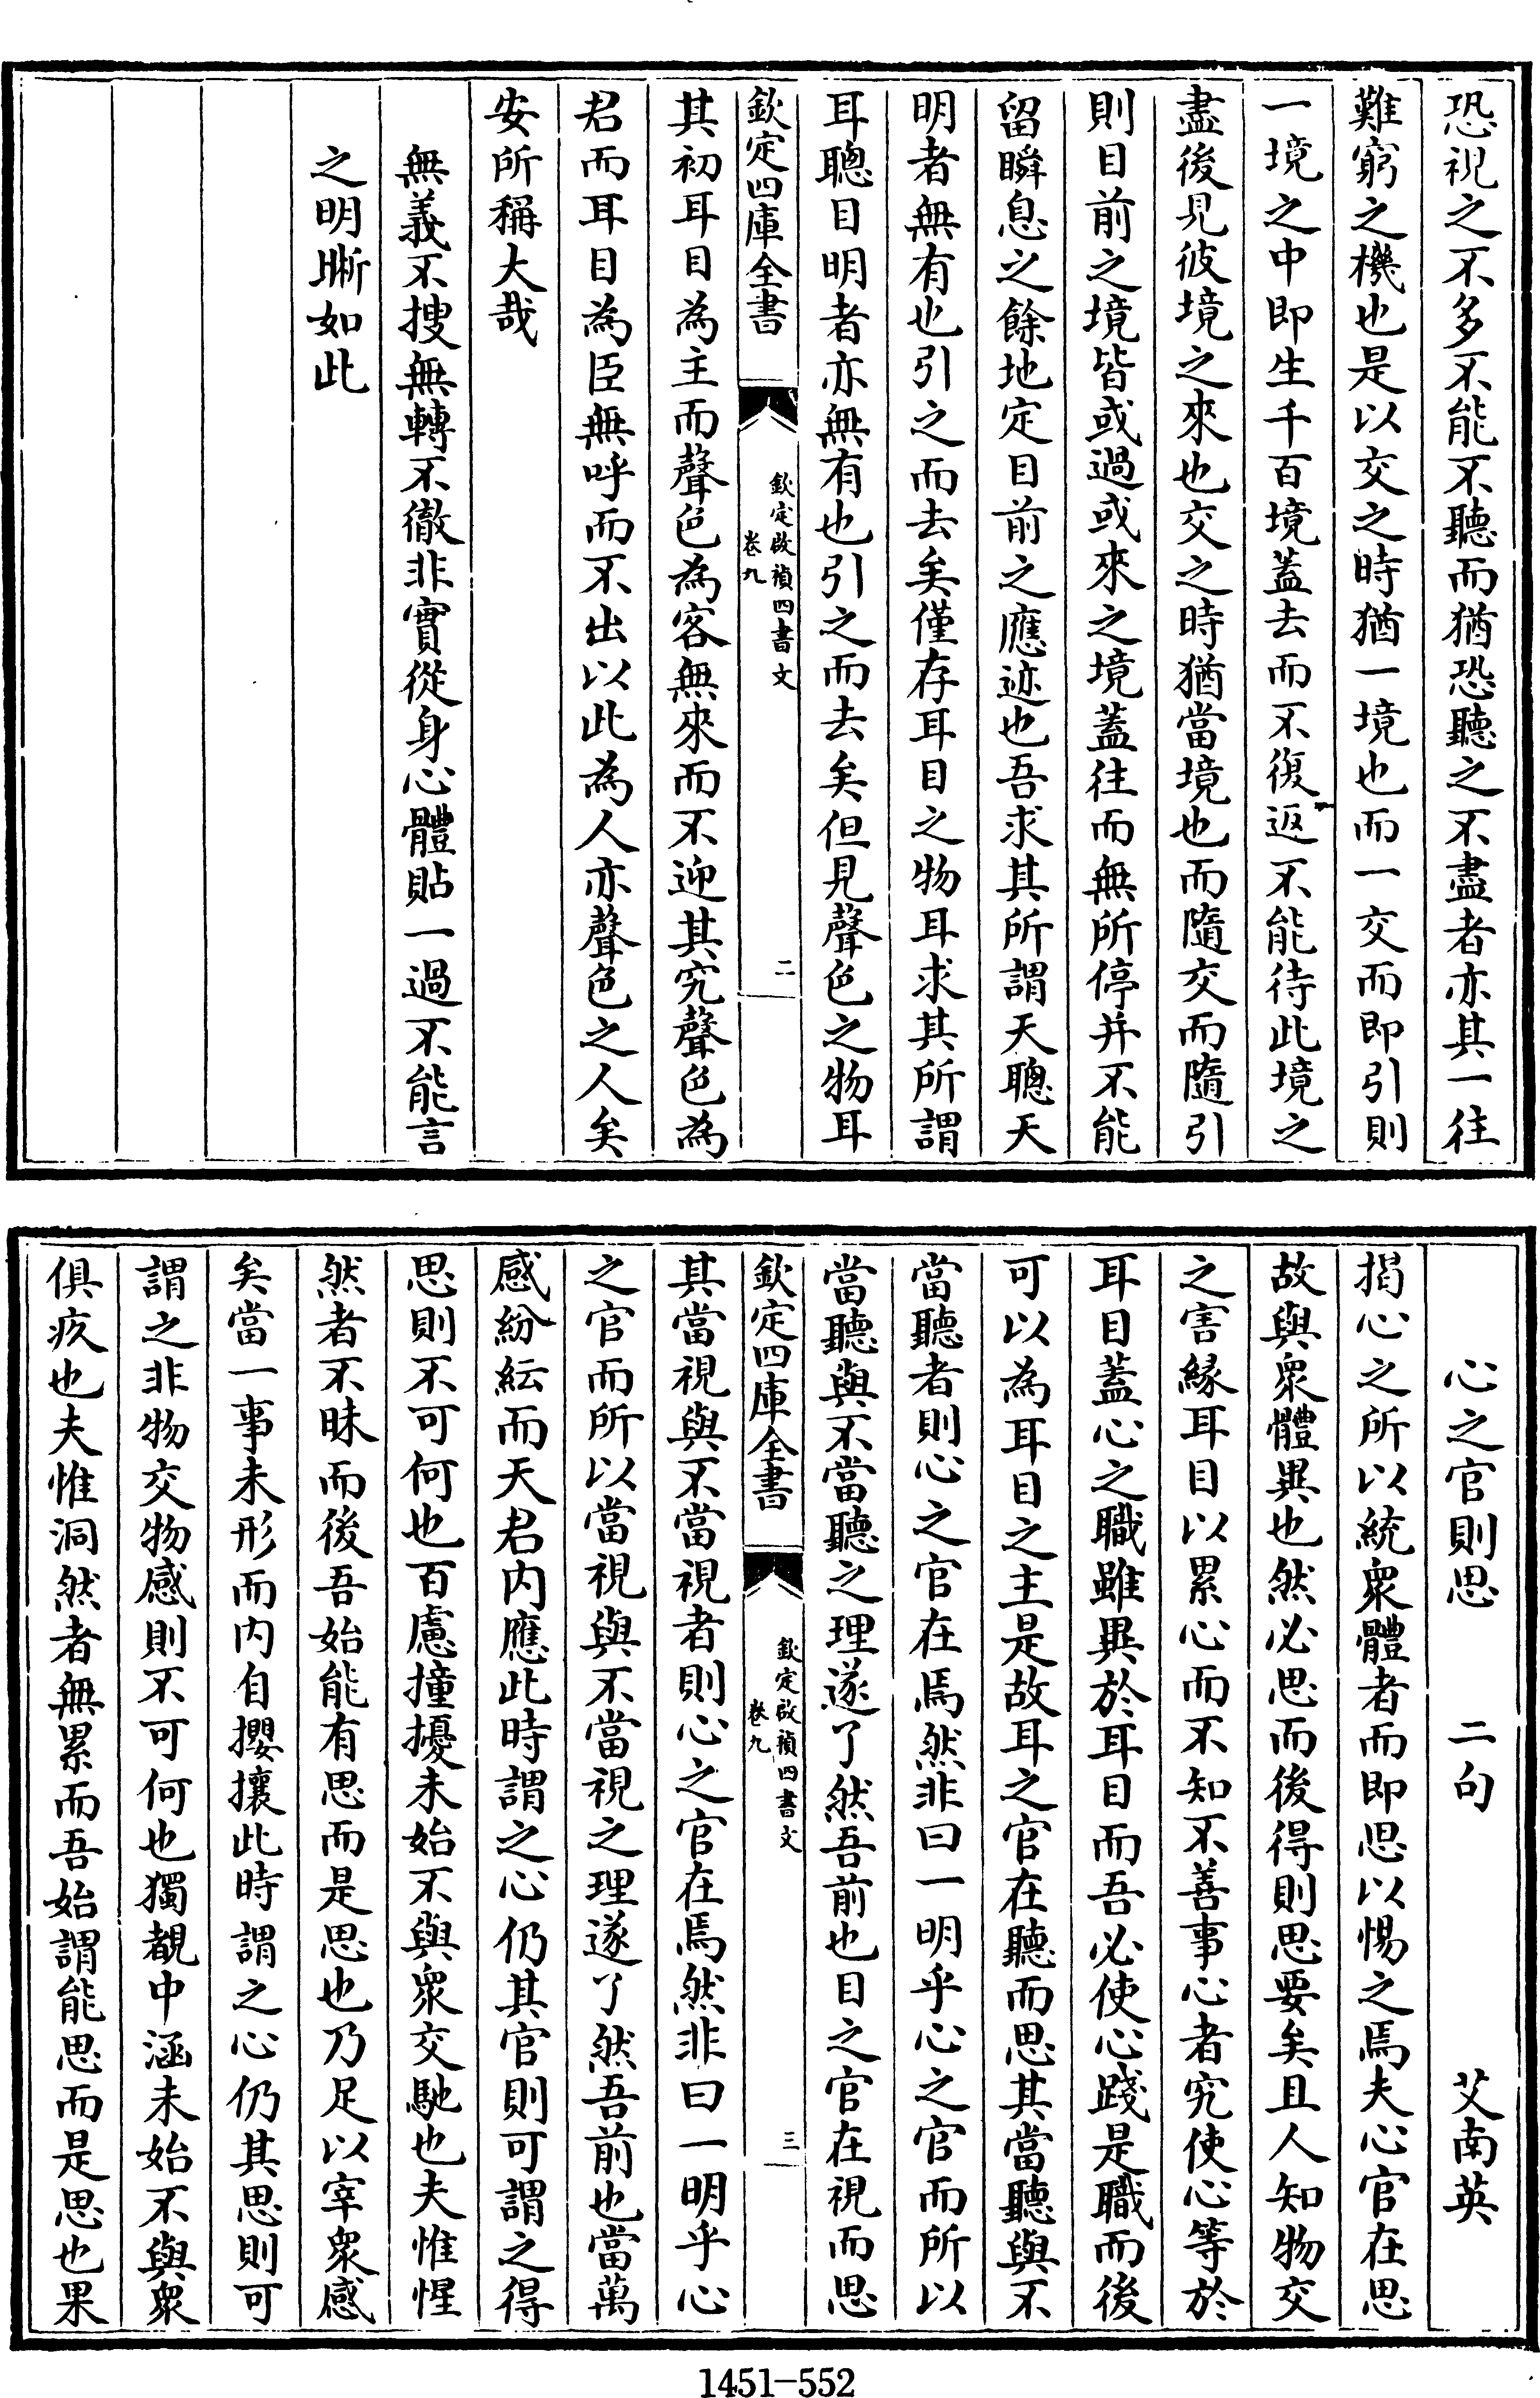 恐視之不多不能不聽而猶恐聽之不盡者亦其一往
難窮之機也是以交之時猶一境也而一交而即引則
一境之中即生千百境蓋去而不復返不能待此境之
盡後見彼境之來也交之時猶當境也而隨交而隨引
則目前之境皆或過或來之境蓋往而無所停并不能
留瞬息之餘地定目前之應迹也吾求其所謂天聰天
明者無有也引之而去矣僅存耳目之物耳求其所謂
耳聰目明者亦無有也引之而去矣但見聲色之物耳
欽定四庫全書
欽定啟禎四書文
卷九
二
其初耳目為主而聲色為客無來而不迎其究聲色為
君而耳目為臣無呼而不出以此為人亦聲色之人矣
安所稱大哉
無義不搜無轉不徹非實從身心體貼一過不能言
之明晰如此
心之官則思 二句 艾南英
揭心之所以統衆體者而即思以惕之焉夫心官在思
故與衆體異也然必思而後得則思要矣且人知物交
之害緣耳目以累心而不知不善事心者究使心等於
耳目蓋心之職雖異於耳目而吾必使心踐是職而後
可以為耳目之主是故耳之官在聽而思其當聽與不
當聽者則心之官在焉然非曰一明乎心之官而所以
當聽與不當聽之理遂了然吾前也目之官在視而思
欽定四庫全書
欽定啟禎四書文
卷九
三
其當視與不當視者則心之官在焉然非曰一明乎心
之官而所以當視與不當視之理遂了然吾前也當萬
感紛紜而天君内應此時謂之心仍其官則可謂之得
思則不可何也百慮撞擾未始不與衆交馳也夫惟惺
然者不昧而後吾始能有思而是思也乃足以宰衆感
矣當一事未形而内自攖攘此時謂之心仍其思則可
謂之非物交物感則不可何也獨覩中涵未始不與衆
俱疚也夫惟洞然者無累而吾始謂能思而是思也果
1451-552